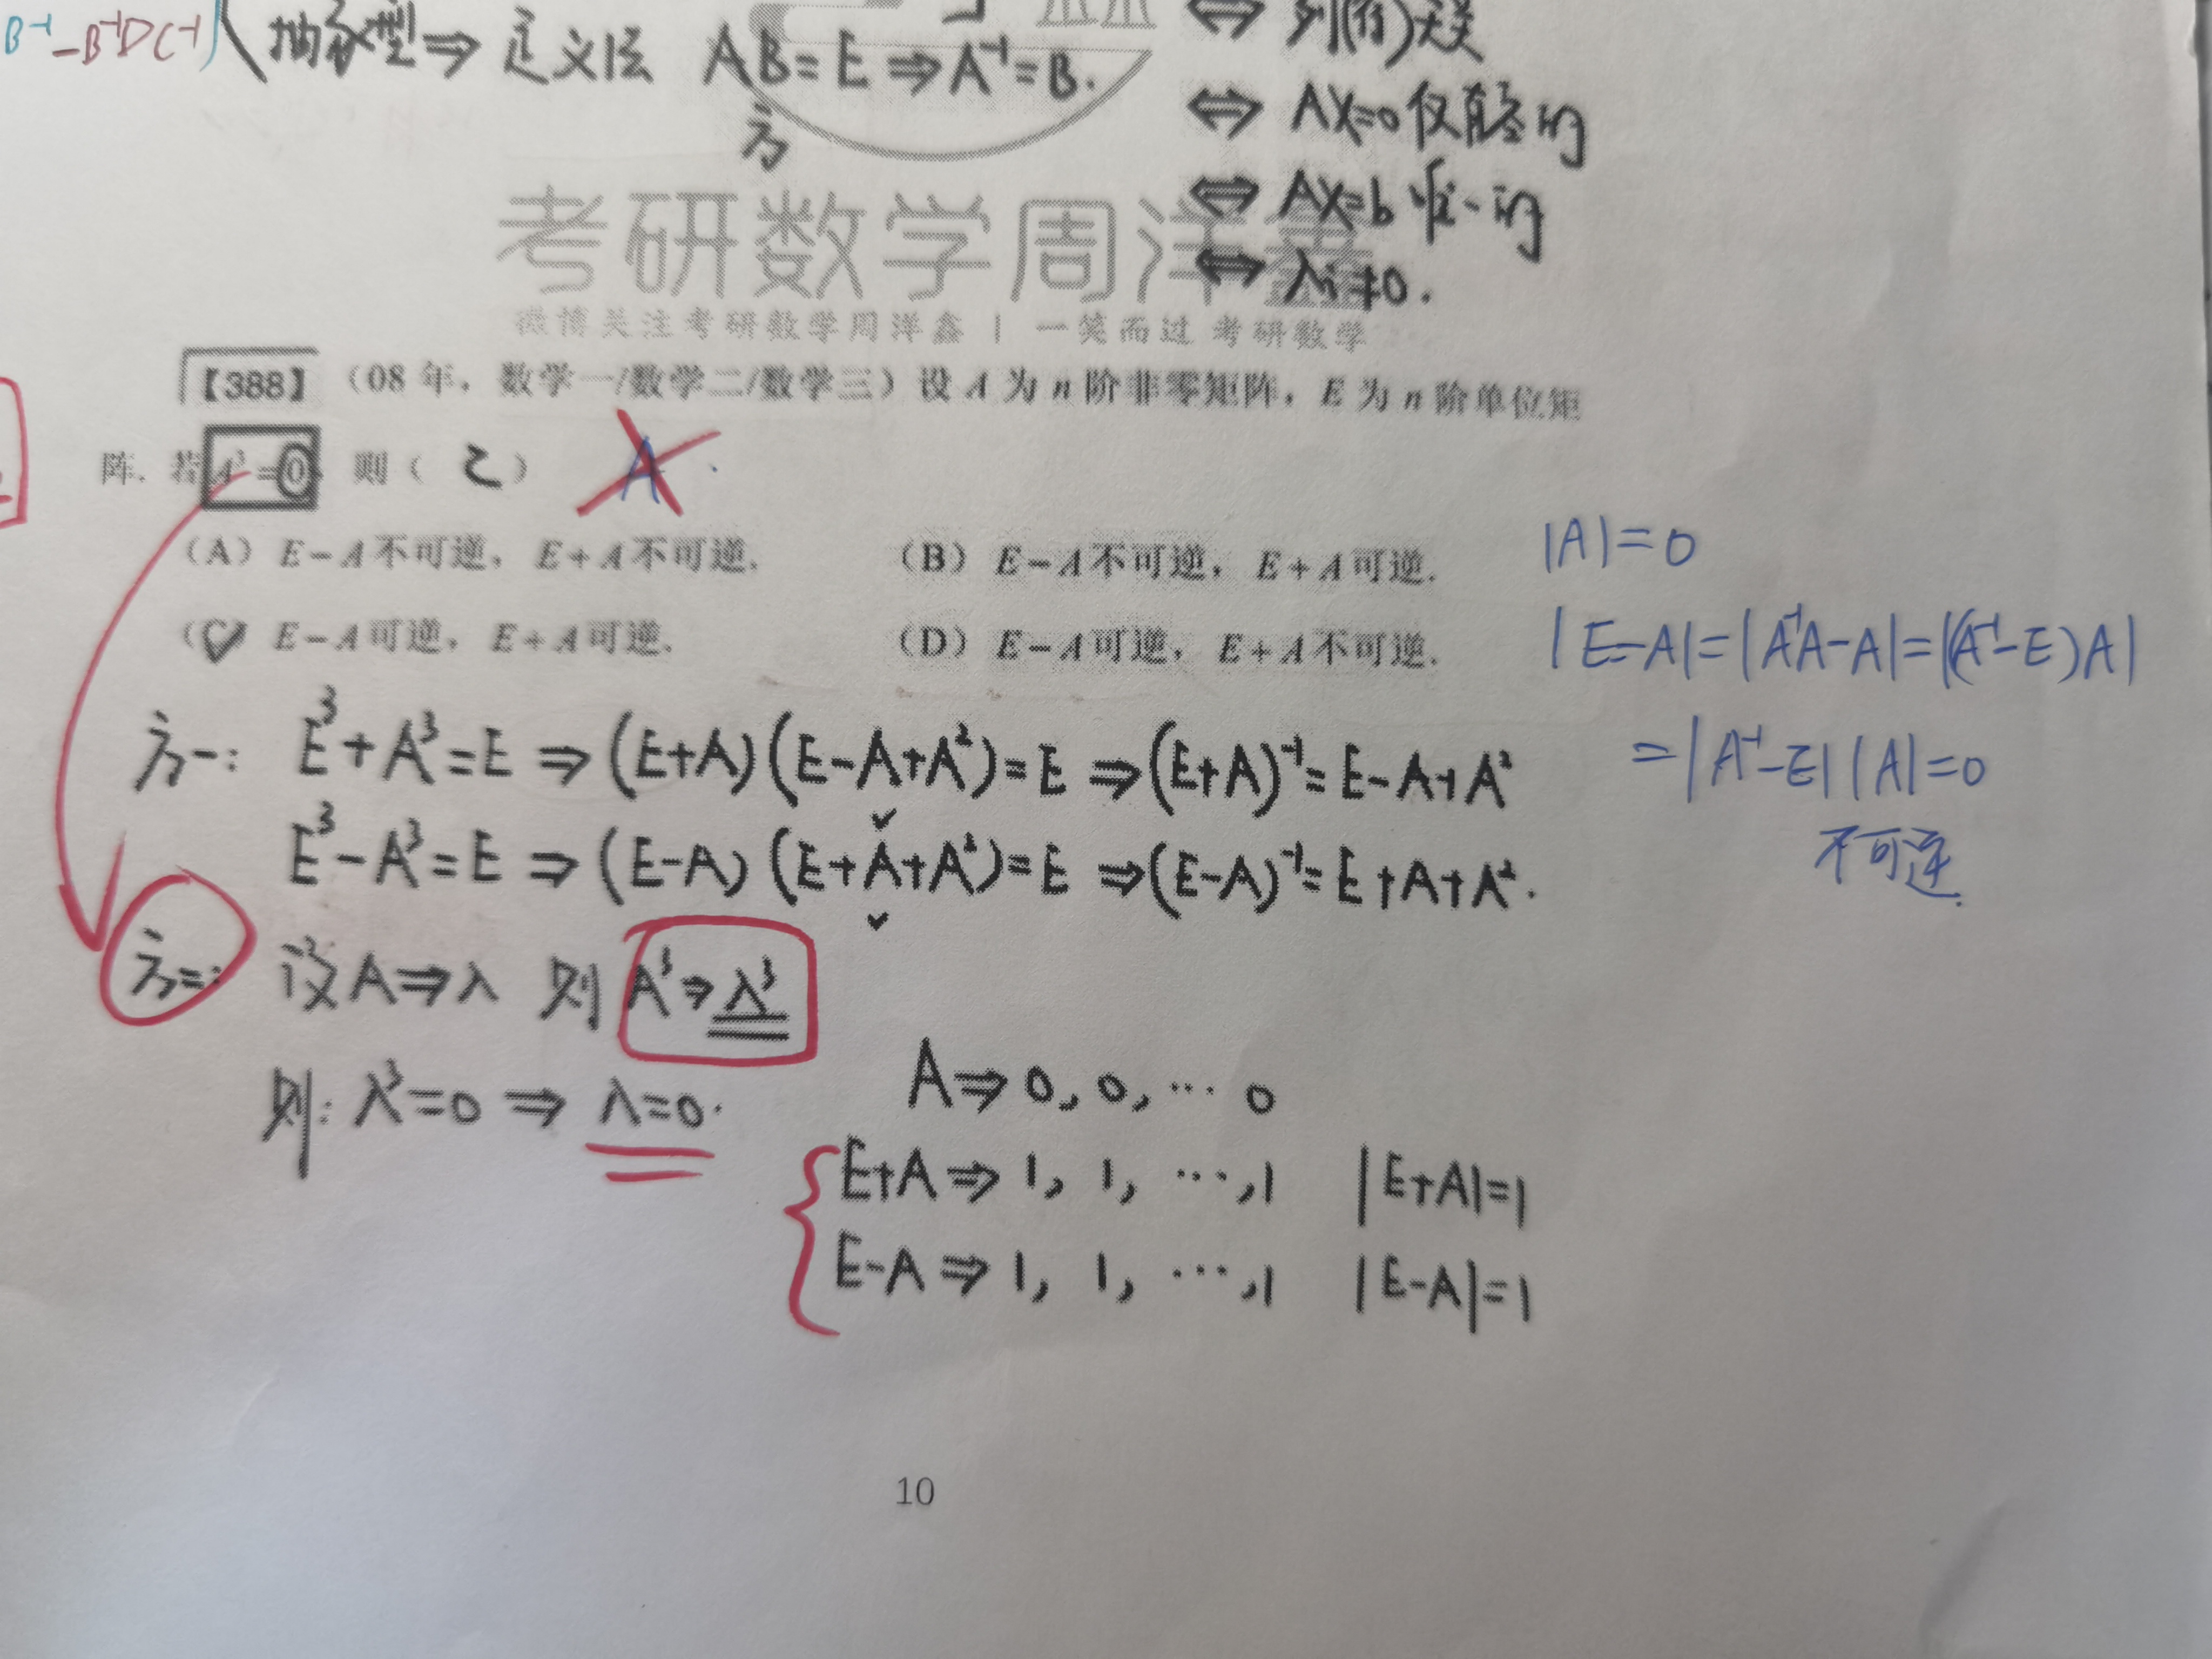 B⁻¹ -B⁻¹DC⁻¹
抽象型⇒ 定义法 AB=E⇒A⁻¹=B.
方
⇔ 列(行)无关
⇔ AX=0 仅有零解
⇔ AX=b 唯一解
⇔ λi≠0.
考研数学周洋鑫
微博关注考研数学周洋鑫 | 一笑而过 考研数学
【388】（08 年，数学一/数学二/数学三）设 A 为 n 阶非零矩阵，E 为 n 阶单位矩
阵. 若 A³=0, 则（ C ） A.
（A）E-A不可逆，E+A不可逆.
（B）E-A不可逆，E+A可逆.
（C）E-A可逆，E+A可逆.
（D）E-A可逆，E+A不可逆.
|A|=0
|E-A|=|A⁻¹A-A|=|(A⁻¹-E)A|
=|A⁻¹-E||A|=0
不可逆.
方一: E³+A³=E ⇒(E+A)(E-A+A²)=E ⇒(E+A)⁻¹=E-A+A²
E³-A³=E ⇒(E-A)(E+A+A²)=E ⇒(E-A)⁻¹=E+A+A².
方二: 设A⇒λ 则 A³⇒λ³
则: λ³=0 ⇒ λ=0.
A⇒0, 0, ⋯ 0
E+A⇒1, 1, ⋯,1 |E+A|=1
E-A⇒1, 1, ⋯,1 |E-A|=1
10